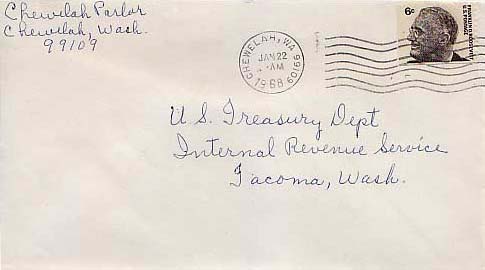 Chewelah Parlor
Chewelah, Wash.
99109
CHEWELAH, WA 99109
JAN 22
AM
1968
6c
FRANKLIN D. ROOSEVELT
U.S. POSTAGE
U.S. Treasury Dept
Internal Revenue Service
Tacoma, Wash.